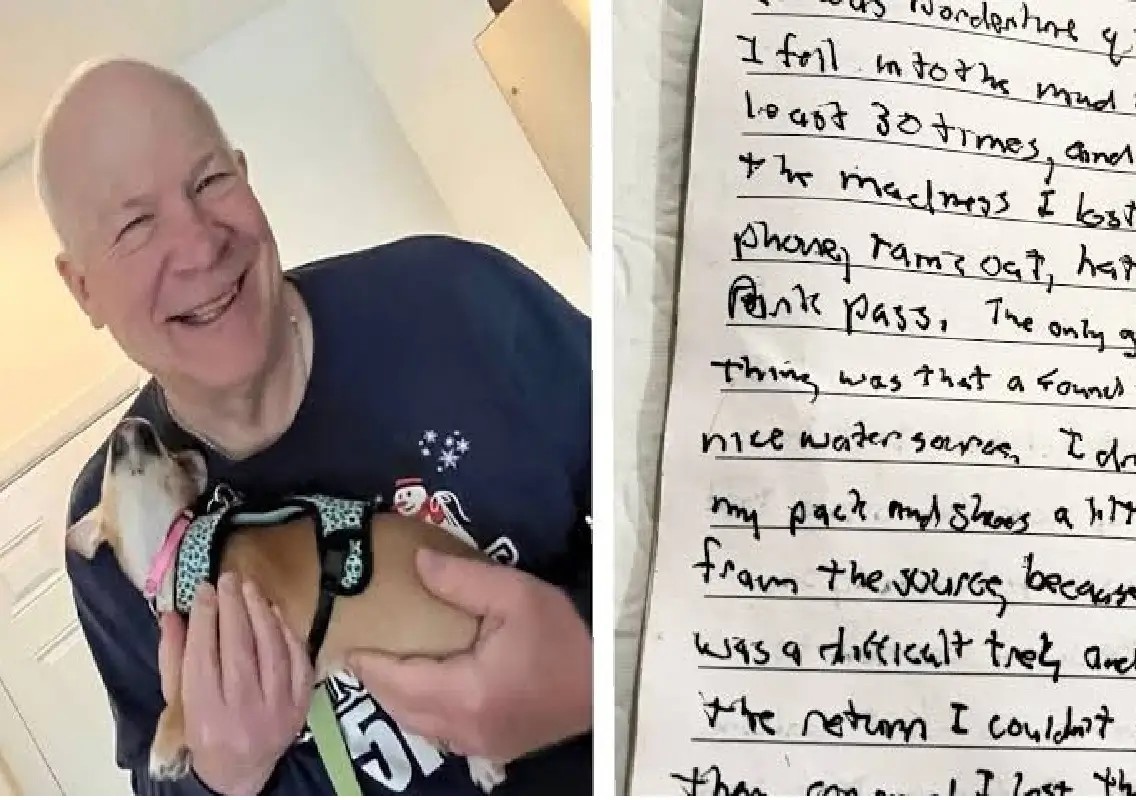 5K
I fell into the mud
least 30 times, and
the madness I lost
phone, rain coat, hat
Park pass. The only g
thing was that a found
nice water source. I dr
my pack and shoes a litt
from the source because
was a difficult trek and
the return I couldnt
I lost th